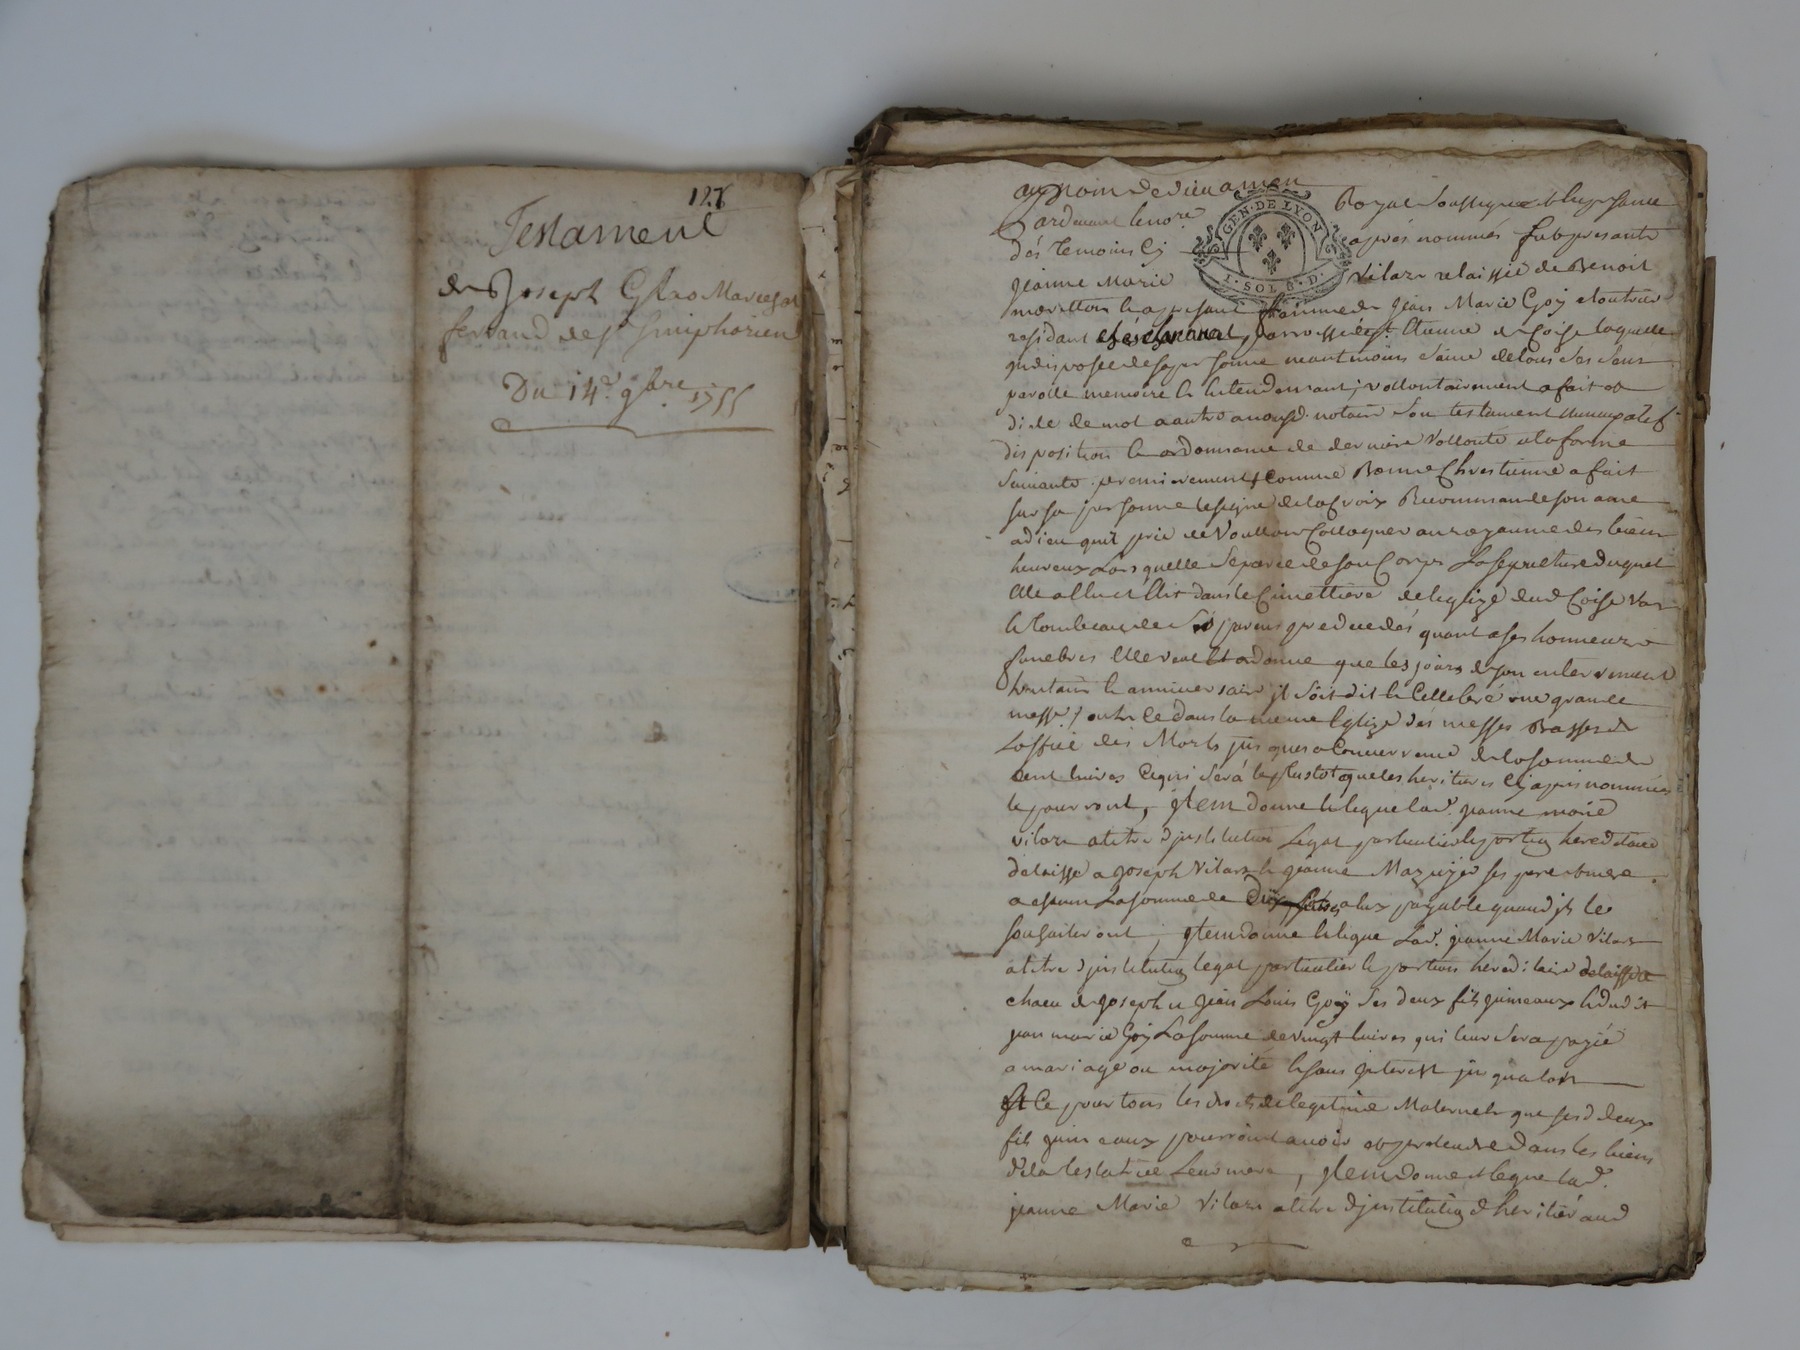 127
Testament
de Joseph Marechal
ferrand de st Simphorien
Du 14e 9bre 1755
au nom de dieu amen
GEN·DE LYON
1·SOL 8·D·
Pardevant le no.re Royal soussigné et en presance
des temoins cy après nommés fut presante
jeanne Marie Vilare relaissée de Benoit
a present femme de jean Marie Goy
residant parroisse st Etienne de Coise laquelle
indisposée de sa personne neantmoins saine de tous ses sens
parolle memoire et entendement, vollontairement a fait et
dicté de mot a autre a nousd. notaire son testament nuncupatif
disposition et ordonnance de derniere vollonté a la forme
suivante. premierement comme Bonne Chrestienne a fait
sur sa personne le signe de la Croix Recommandé son ame
a dieu quil prie de vouloir Colloquer au royaume des bien
heureux lors quelle separée de son Corps La sepulture duquel
Elle a elu dans le Cimettiere de leglize dud. Coise
et tombeau de ses parens predecedés quant a ses honneurs
funebres Elle veut et ordonne que les jours de son enterrement
quarantaine et anniversaire il soit dit et Cellebré une grande
messe, outre ce dans la meme Eglize des messes Basses de
Loffice des Morts jusques a Concurrance de la somme de
cent livres ce qui sera le plustot que les heritiers cy apres nommés
le pourront, jtem donne et legue lad. jeanne marie
vilare a titre d'jnstitution Legat particulier et portion hereditaire
delaisse a joseph vilare et jeanne Mazuyer ses pere et mere
a chacun La somme de payable quand ils le
souhaiteront, jtem donne et legue Lad. jeanne Marie Vilare
a titre d'jnstitution legat particulier et portion hereditaire delaissée
chacun de joseph et jean Louis Goy ses deux fils jumeaux et dudit
jean marie Goy La somme de vingt livres qui leur sera payée
a mariage ou majorité et sans jnterest jusqualors
Et Ce pour tous les droits de legitime Maternels que sesd. deux
fils jumeaux pourroint avoir et pretendre dans les biens
de la testatrice Leur mere, jtem donne et legue lad.
jeanne Marie Vilare a titre d'jnstitution d'heritier aud